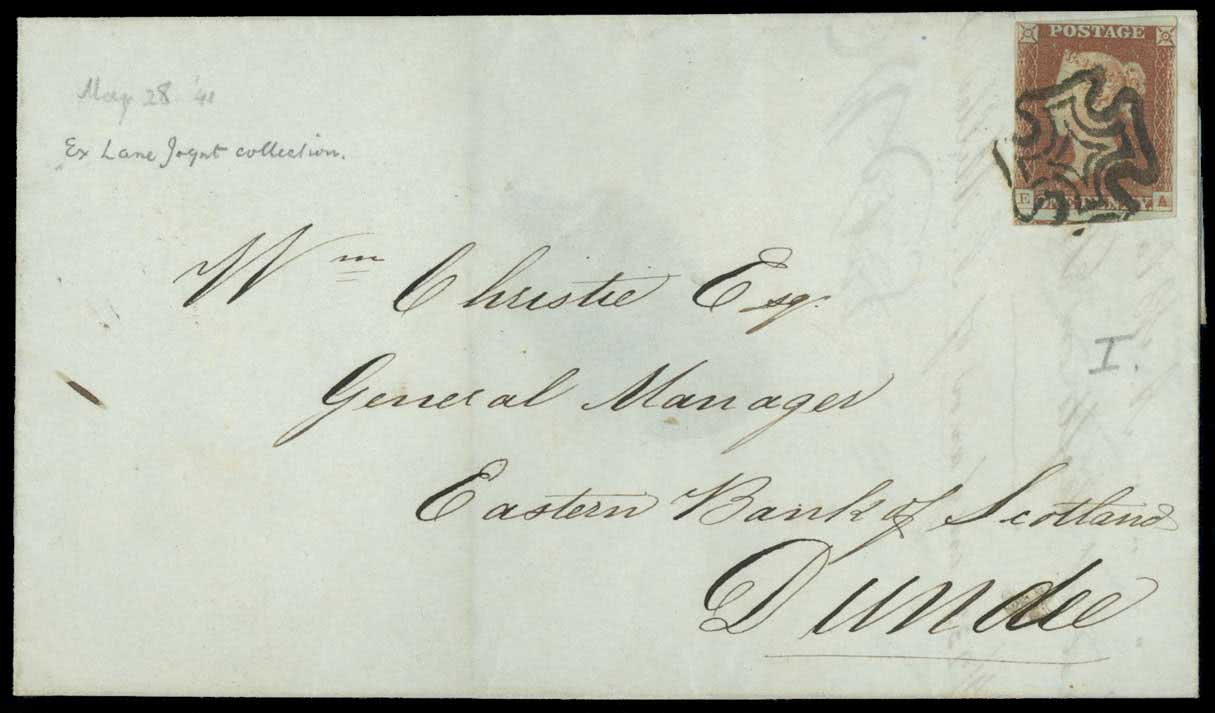 May 28 '41
Ex Lane Joynt collection.
POSTAGE
E A
Wm Christie Esq.
General Manager
I.
Eastern Bank of Scotland
Dundee